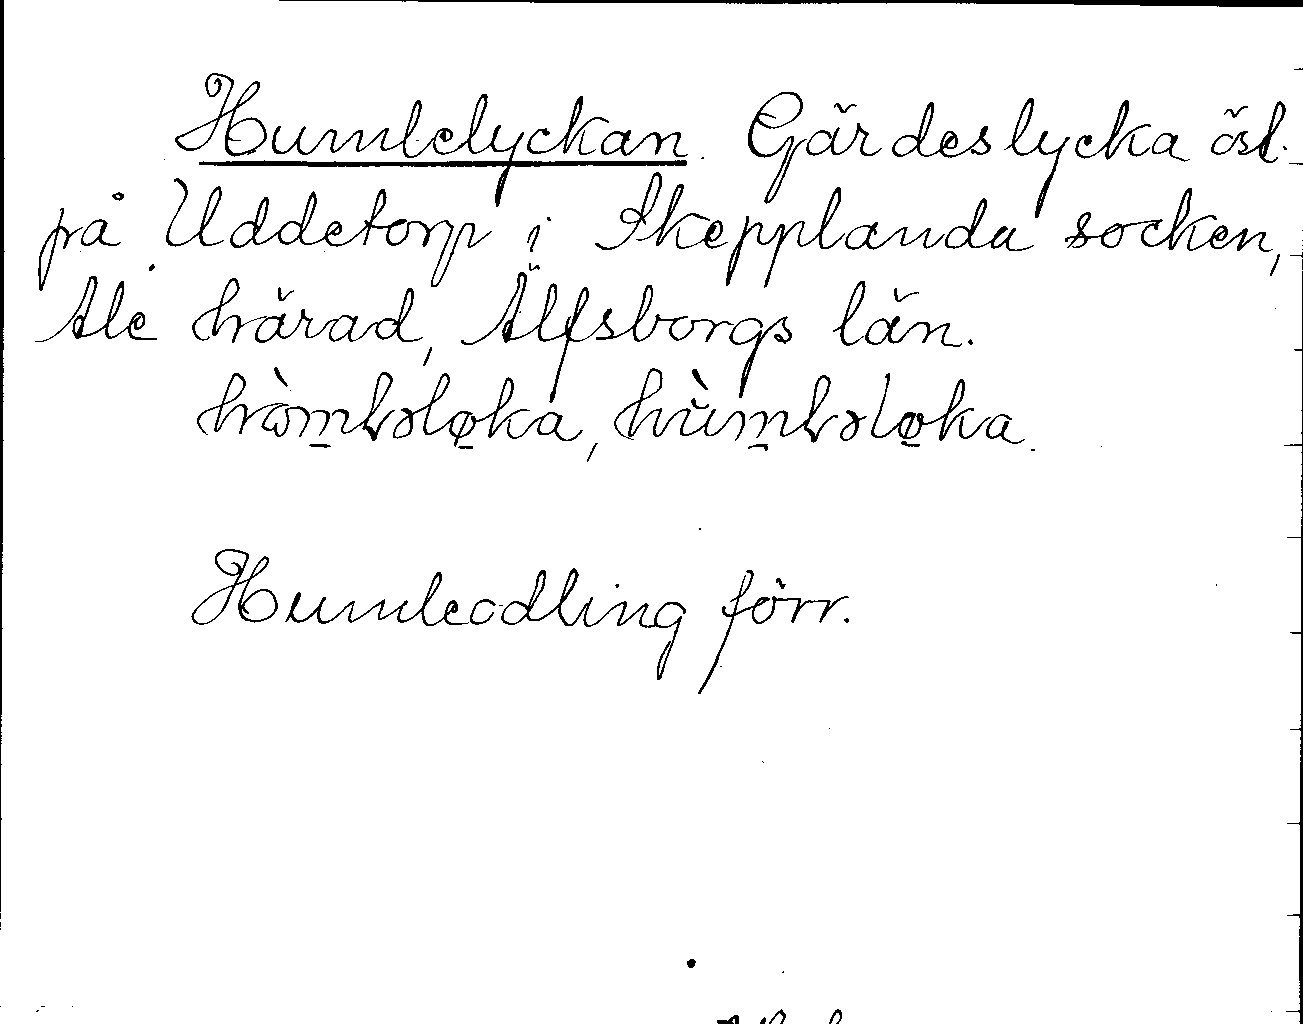 Humlelyckan. Gärdeslycka östl.
på Uddetorp i Skepplanda socken,
Ale härad, Älfsborgs län.
hòmbələka, hùmbələka.
Humleodling förr.